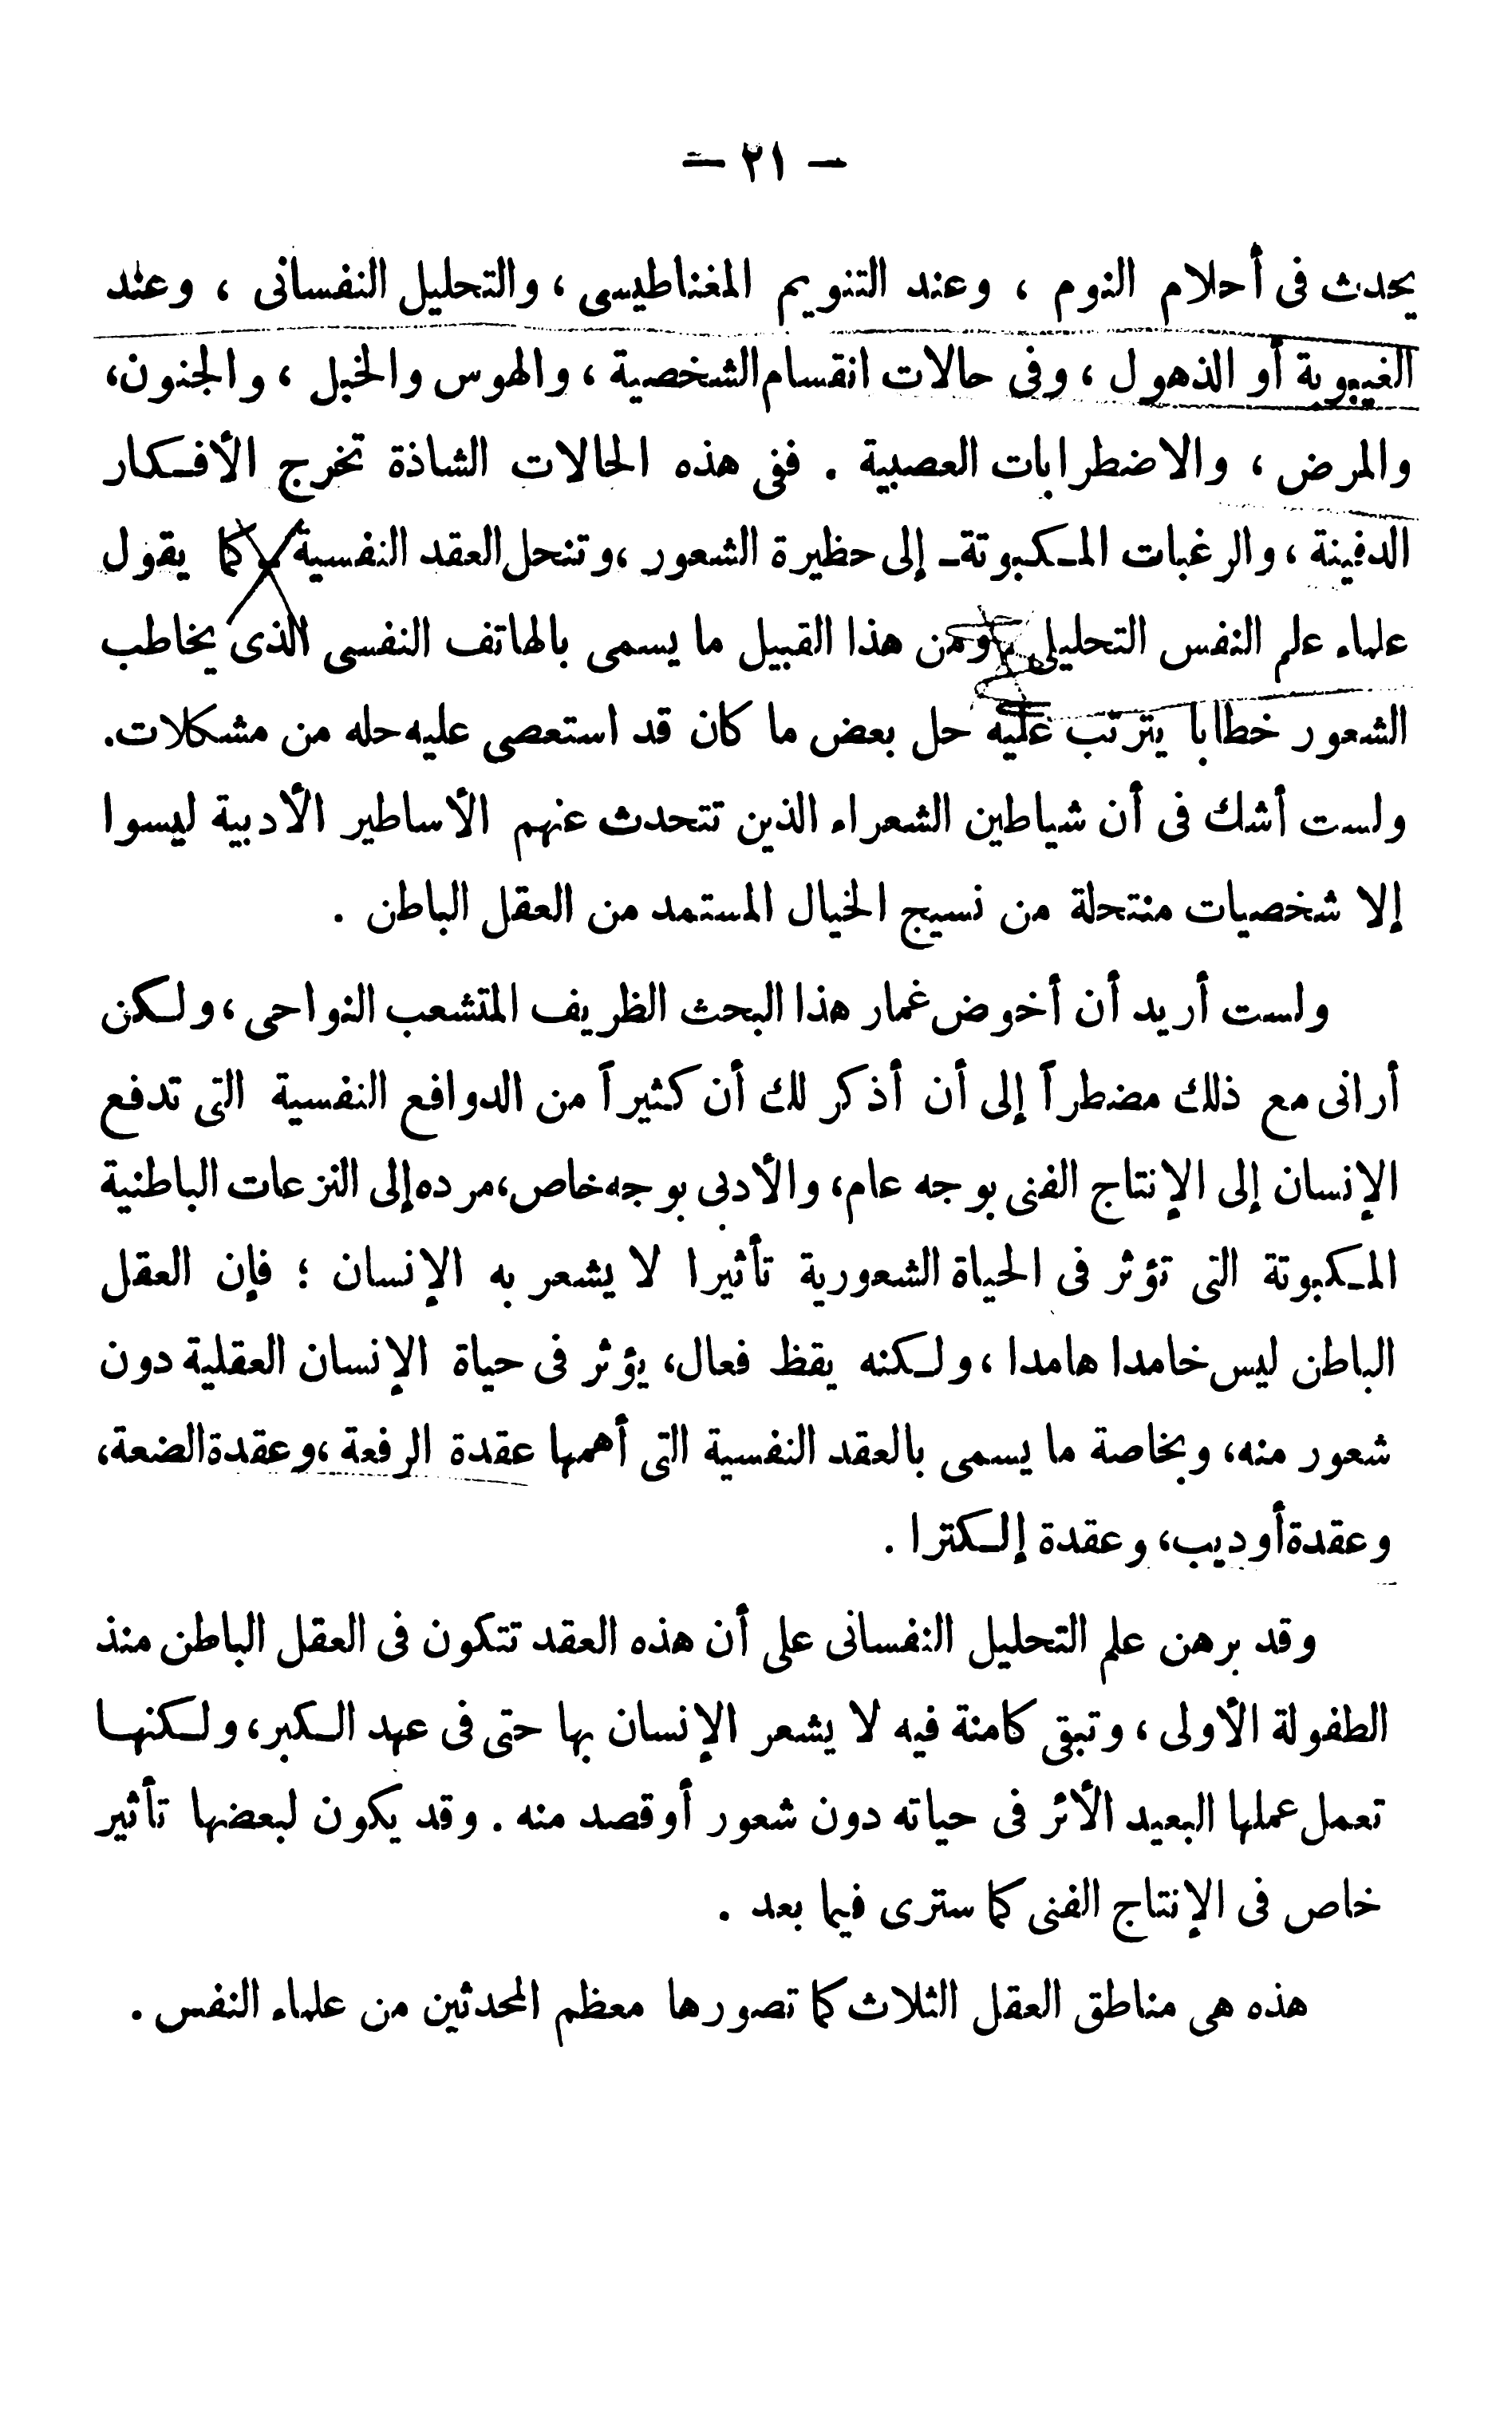 — ٢١ —
يحدث فى أحلام النوم ، وعند التنويم المغناطيسى ، والتحليل النفسانى ، وعند
الغيبوبة أو الذهول ، وفى حالات انقسام الشخصية ، والهوس والخبل ، والجنون،
والمرض ، والاضطرابات العصبية . ففى هذه الحالات الشاذة تخرج الأفكار
الدفينة ، والرغبات المكبوتة ـ إلى حظيرة الشعور ، وتنحل العقد النفسية كما يقول
علماء علم النفس التحليلى ومن هذا القبيل ما يسمى بالهاتف النفسى الذى يخاطب
الشعور خطابا يترتب عليه حل بعض ما كان قد استعصى عليه حله من مشكلات.
ولست أشك فى أن شياطين الشعراء الذين تتحدث عنهم الأساطير الأدبية ليسوا
إلا شخصيات منتحلة من نسيج الخيال المستمد من العقل الباطن .
ولست أريد أن أخوض غمار هذا البحث الظريف المتشعب النواحى ، ولكن
أرانى مع ذلك مضطراً إلى أن أذكر لك أن كثيراً من الدوافع النفسية التى تدفع
الإنسان إلى الإنتاج الفنى بوجه عام، والأدبى بوجه خاص، مرده إلى النزعات الباطنية
المكبوتة التى تؤثر فى الحياة الشعورية تأثيرا لا يشعر به الإنسان ؛ فإن العقل
الباطن ليس خامدا هامدا ، ولكنه يقظ فعال، يؤثر فى حياة الإنسان العقلية دون
شعور منه، وبخاصة ما يسمى بالعقد النفسية التى أهمها عقدة الرفعة ، وعقدة الضعة،
وعقدة أوديب، وعقدة إلكترا .
وقد برهن علم التحليل النفسانى على أن هذه العقد تتكون فى العقل الباطن منذ
الطفولة الأولى ، وتبقى كامنة فيه لا يشعر الإنسان بها حتى فى عهد الكبر، ولكنها
تعمل عملها البعيد الأثر فى حياته دون شعور أو قصد منه . وقد يكون لبعضها تأثير
خاص فى الإنتاج الفنى كما سترى فيما بعد .
هذه هى مناطق العقل الثلاث كما تصورها معظم المحدثين من علماء النفس .